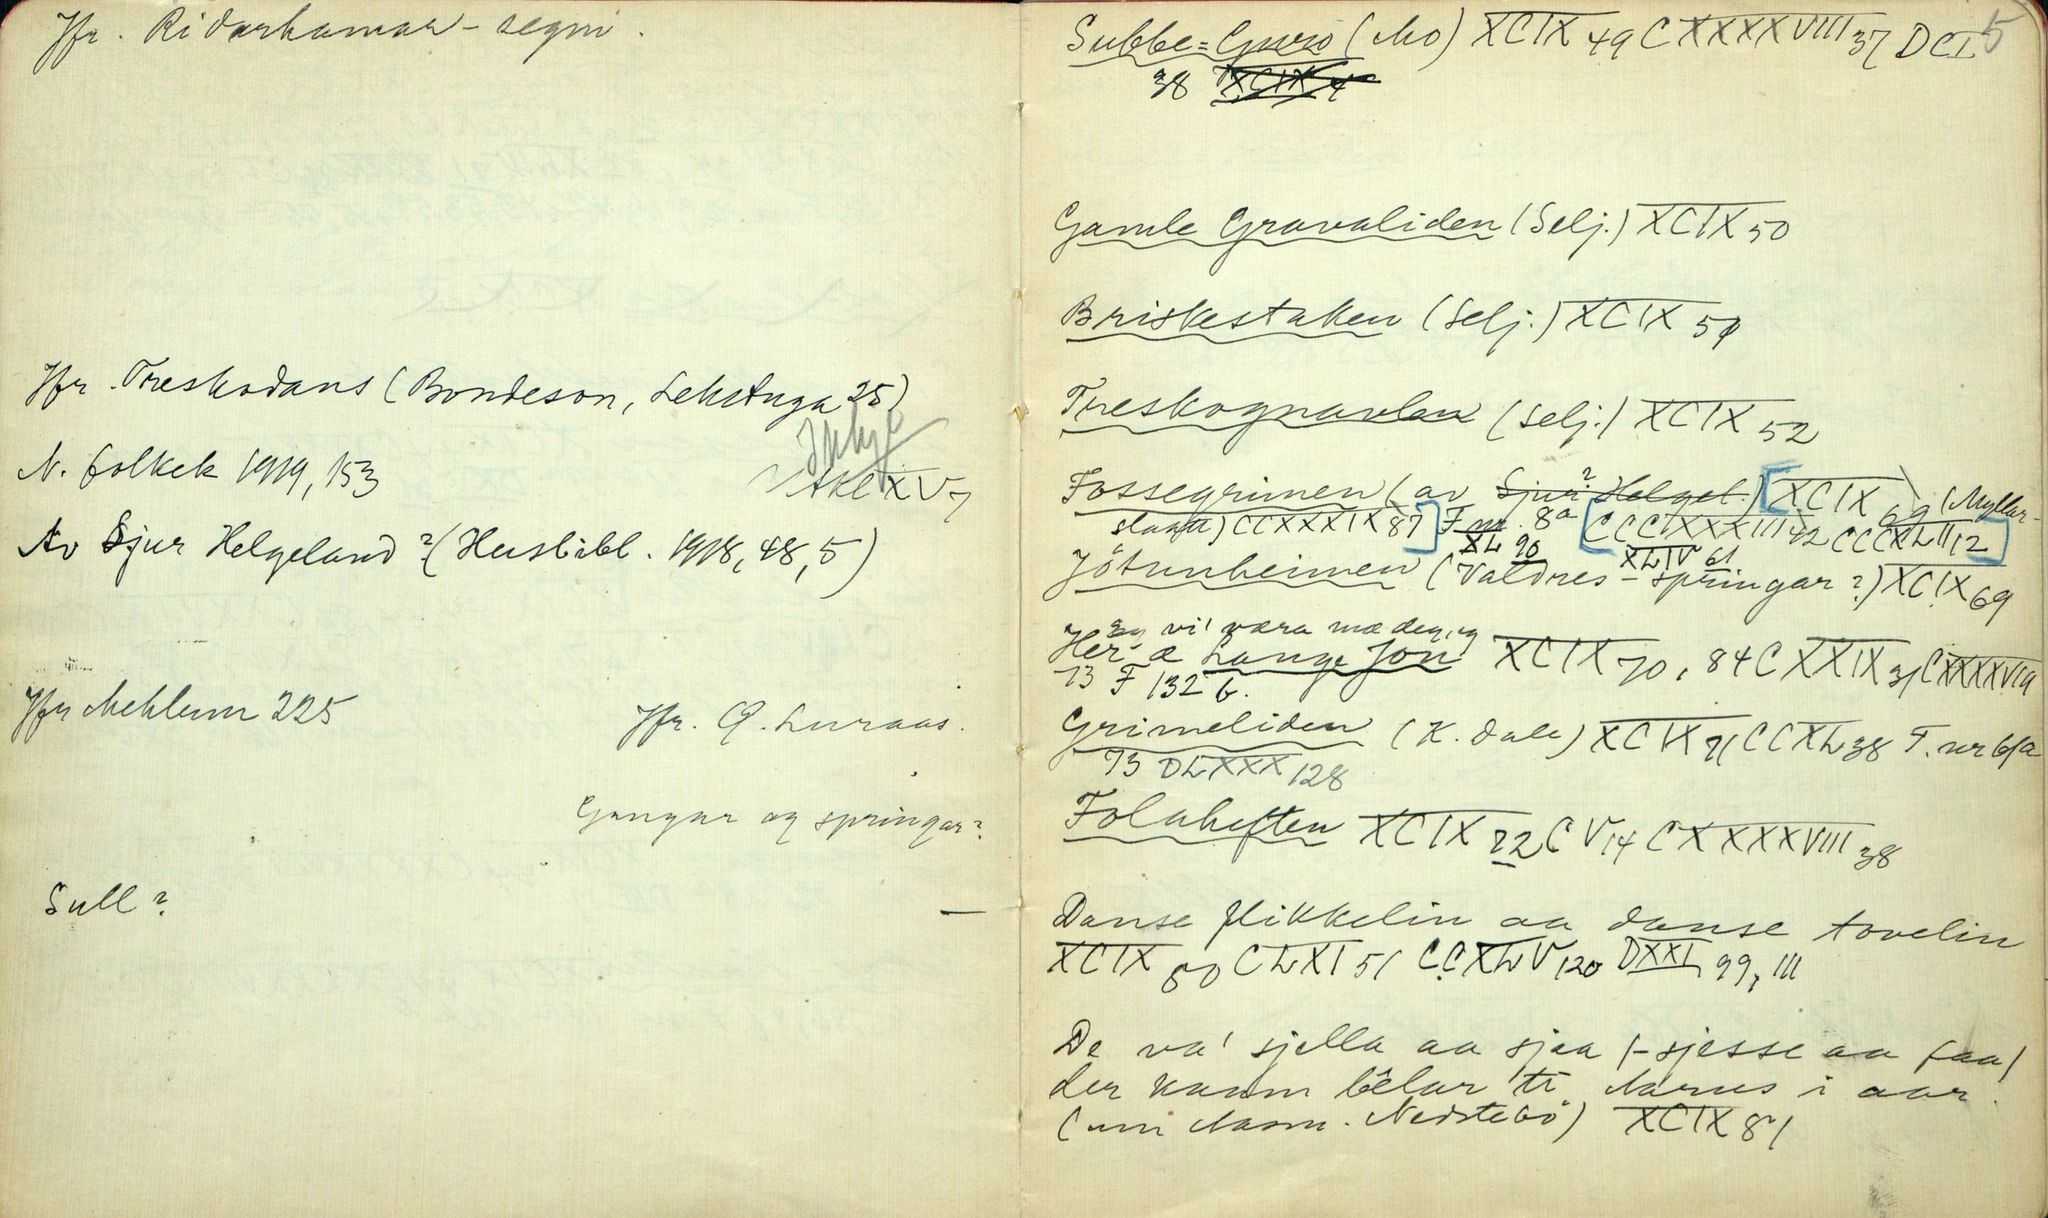 Jfr. Ridarhamar-segni.
Jfr. Treskodans (Bondeson, Lekstuga 25)
N. folkek 1919, 153
Ikkje
XV 7
Av Sjur Helgeland? (Huslibl. 1918, 48, 5)
Jfr Mehlum 225
Jfr. Q. Luraas.
Gangar og springar?
Sull?
—
5
Subbe=Guro (Mo) XCIX 49 CXXXXVIII 37 DCI
38 XCIX 4
Gamle Gravaliden (Selj.) XCIX 50
Briskestaken (Selj.) XCIX 51
Treskognavlen (Selj.) XCIX 52
Fossegrimen (av Sjur? Helgel.) [XCIX 69 (Myllar-
slaatt) CCXXXIX 87] F nr. 8a [CCCLXXXIII 42 CCCXLII 12]
XL 90 XLIV 61
Jötunheimen (Valdres-springar?) XCIX 69
Eg vi' væra mæ deg, eg
Her æ Lange Jon XCIX 70, 84 CXXIX 31 CXXXXVIII
73 F 132 b.
Grimeliden (K. Dale) XCIX 71 CCXL 38 F. nr 61a
73 DLXXX 128
Folaheften XCIX 72 CV 14 CXXXXVIII 38
Danse Mikkelin aa danse tovelin
XCIX 80 CLXI 51 CCXLV 120 DXXI 99, 111
De va' sjella aa sjaa (-sjesse aa faa)
der kaam bêlar ti Marus i aar.
(um Aasm. Nedstebö) XCIX 81